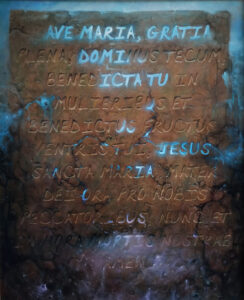 AVE MARIA, GRATIA
PLENA, DOMINUS TECUM,
BENEDICTA TU IN
MULIERIBUS ET
BENEDICTUS FRUCTUS
VENTRIS TUI, JESUS
SANCTA MARIA, MATER
DEI ORA PRO NOBIS
PECCATORIBUS, NUNC ET
HORA MORTIS NOSTRAE
AMEN